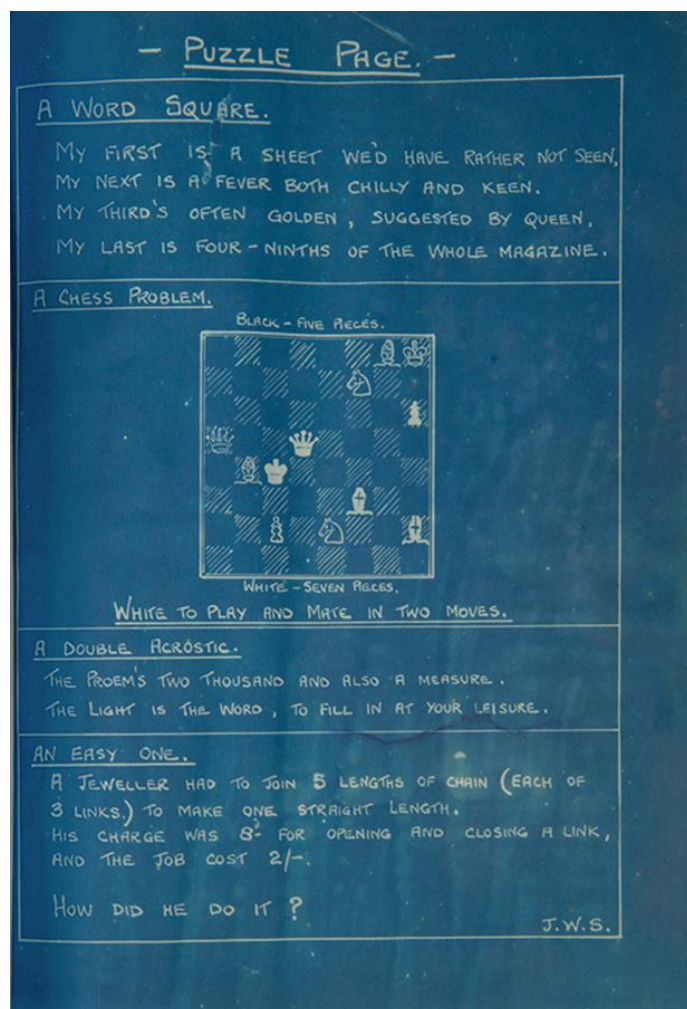 - PUZZLE PAGE. -
A WORD SQUARE.
MY FIRST IS A SHEET WE'D HAVE RATHER NOT SEEN,
MY NEXT IS A FEVER BOTH CHILLY AND KEEN.
MY THIRD'S OFTEN GOLDEN, SUGGESTED BY QUEEN,
MY LAST IS FOUR-NINTHS OF THE WHOLE MAGAZINE.
A CHESS PROBLEM.
BLACK - FIVE PIECES.
WHITE - SEVEN PIECES.
WHITE TO PLAY AND MATE IN TWO MOVES.
A DOUBLE ACROSTIC.
THE PROEM'S TWO THOUSAND AND ALSO A MEASURE.
THE LIGHT IS THE WORD, TO FILL IN AT YOUR LEISURE.
AN EASY ONE.
A JEWELLER HAD TO JOIN 5 LENGTHS OF CHAIN (EACH OF
3 LINKS.) TO MAKE ONE STRAIGHT LENGTH.
HIS CHARGE WAS 8D FOR OPENING AND CLOSING A LINK,
AND THE JOB COST 2/-.
HOW DID HE DO IT?
J.W.S.